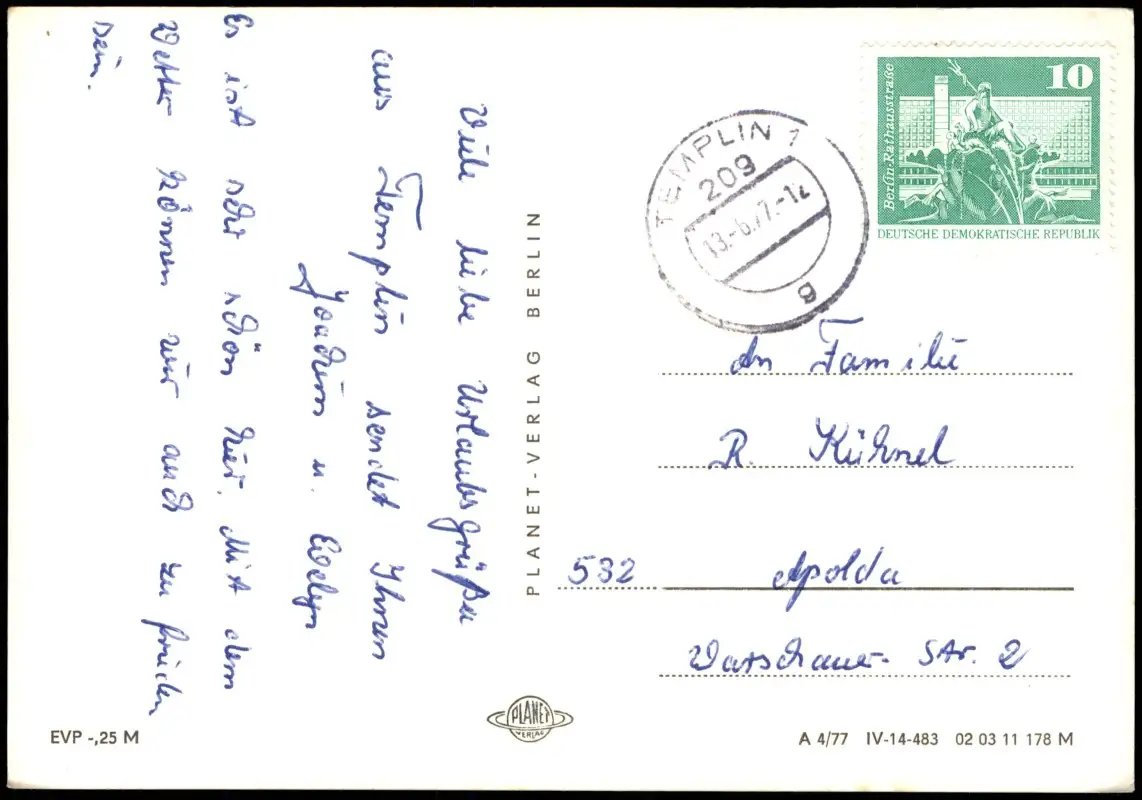 Viele liebe Urlaubsgrüße
aus Templin sendet Ihnen
Joachim u. Evelyn
Es ist sehr schön hier. Mit dem
Wetter können wir auch zu frieden
sein.
PLANET-VERLAG BERLIN
10
Berlin·Rathausstraße
DEUTSCHE DEMOKRATISCHE REPUBLIK
TEMPLIN 1
209
13.-6.77.-12
An Familie
R. Kühnel
532 Apolda
Warschauer Str. 2
PLANET
VERLAG
EVP -,25 M
A 4/77 IV-14-483 02 03 11 178 M